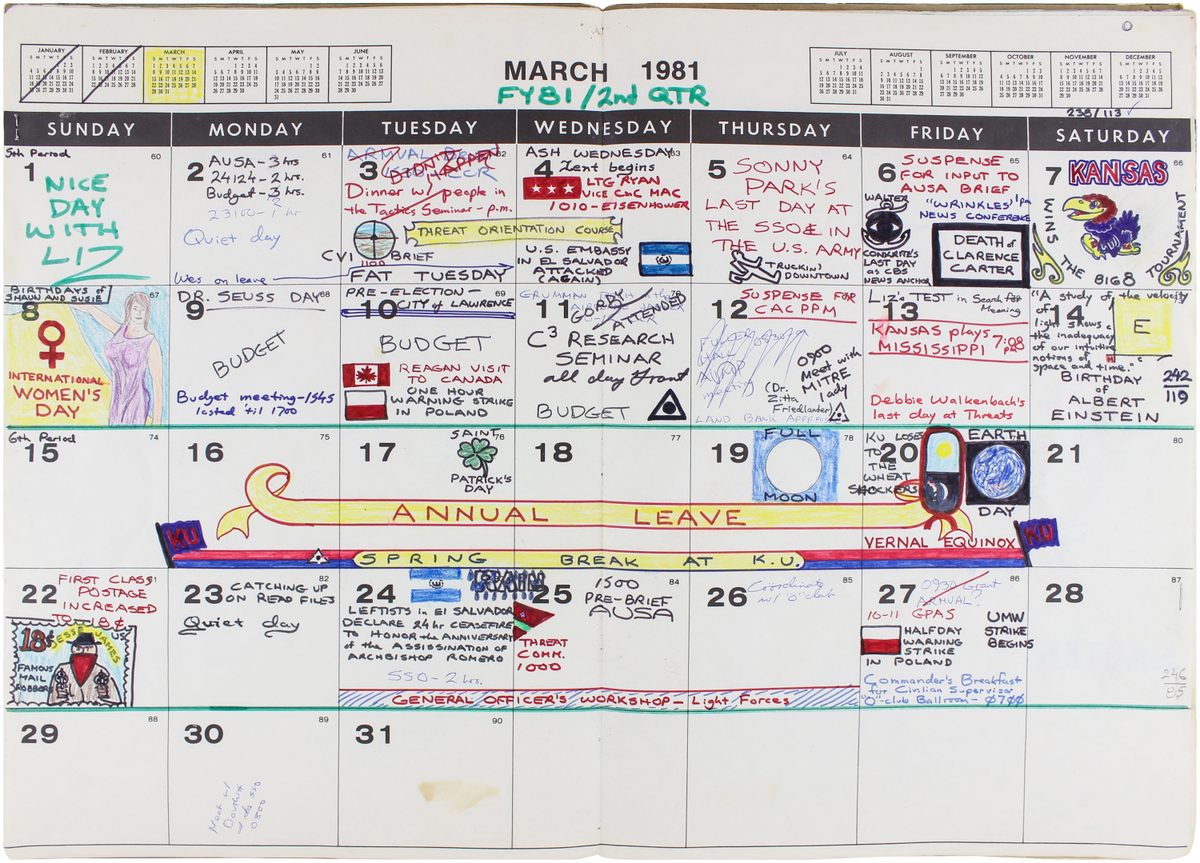 JANUARY
FEBRUARY
MARCH
APRIL
MAY
JUNE
MARCH 1981
FY81/2nd QTR
JULY
AUGUST
SEPTEMBER
OCTOBER
NOVEMBER
DECEMBER
238/113
SUNDAY
MONDAY
TUESDAY
WEDNESDAY
THURSDAY
FRIDAY
SATURDAY
5th Period
1
60
NICE
DAY
WITH
LIZ
2
61
AUSA-3 hrs
24124-2 hrs.
Budget-3 hrs.
23100-1 hr
Quiet day
Wes on leave
3
62
DIDN'T HAPPEN
Dinner w/ people in
the Tactics Seminar-p.m.
THREAT ORIENTATION COURSE
CVI BRIEF
1100
FAT TUESDAY
4
63
ASH WEDNESDAY
Lent begins
LTG RYAN
VICE CNC MAC
1010-EISENHOWER
U.S. EMBASSY
IN EL SALVADOR
ATTACKED
(AGAIN)
5
64
SONNY
PARK'S
LAST DAY AT
THE SSO & IN
THE U.S. ARMY
TRUCKIN'
DOWNTOWN
6
65
SUSPENSE
FOR INPUT TO
AUSA BRIEF
WALTER
CONKRITE'S
LAST DAY
as CBS
NEWS ANCHOR
"WRINKLES" 1pm
NEWS CONFERENCE
DEATH of
CLARENCE
CARTER
7
66
KANSAS
WINS
THE BIG 8
TOURNAMENT
BIRTHDAYS of
SHAUN AND SUSIE
8
67
INTERNATIONAL
WOMEN'S
DAY
9
68
DR. SEUSS DAY
BUDGET
Budget meeting-1545
lasted 'til 1700
10
69
PRE-ELECTION-
CITY of LAWRENCE
BUDGET
REAGAN VISIT
TO CANADA
ONE HOUR
WARNING STRIKE
IN POLAND
11
70
GRUMMAN
GORDY
ATTENDED
C3 RESEARCH
SEMINAR
all day Grant
BUDGET
12
SUSPENSE FOR
CAC PPM
meeting
0900
Meet with
MITRE
lady
(Dr.
Zitta
Friedlander)
LAND BANK APPRAISAL
13
Liz's TEST in Search for
Meaning
KANSAS plays
MISSISSIPPI 7:08
pm
Debbie Walkenbach's
last day at Threats
14
"A study of the velocity
of
light shows
the inadequacy
of our intuitive
notions of
space and time."
E
BIRTHDAY
of
ALBERT
EINSTEIN
242
119
6th Period
15
74
16
75
17
76
SAINT
PATRICK'S
DAY
18
77
19
78
FULL
MOON
20
KU LOSES
TO
THE
WHEAT
SHOCKERS
EARTH
DAY
VERNAL EQUINOX
21
80
ANNUAL LEAVE
KU
SPRING BREAK AT K.U.
KU
22
81
FIRST CLASS
POSTAGE
INCREASED
TO 18¢
18¢
JESSE JAMES
US
FAMOUS
MAIL
ROBBER
23
82
CATCHING UP
ON READ FILES
Quiet day
24
LEFTISTS in El SALVADOR
DECLARE 24 hr CEASEFIRE
TO HONOR the ANNIVERSARY
of the ASSISSINATION OF
ARCHBISHOP ROMERO
SSO-2 hrs.
25
84
1500
PRE-BRIEF
AUSA
THREAT
COMM.
1000
26
85
Coordinate
w/ 'O' club
27
86
0930
ANNUAL
10-11 GPAS
HALFDAY
WARNING
STRIKE
IN POLAND
UMW
STRIKE
BEGINS
Commander's Breakfast
for Civilian Supervisor
"O"-club Ballroom-0700
28
87
246
85
GENERAL OFFICER'S WORKSHOP-Light Forces
29
88
30
89
Meet w/
0800
31
90